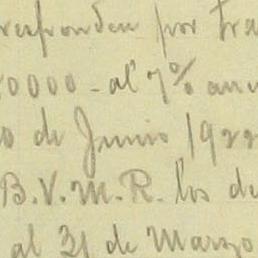 rresponden por tra
50000 - al 7% anu
0 de Junio 1922
B. V. M. R. los de
al 31 de Marzo